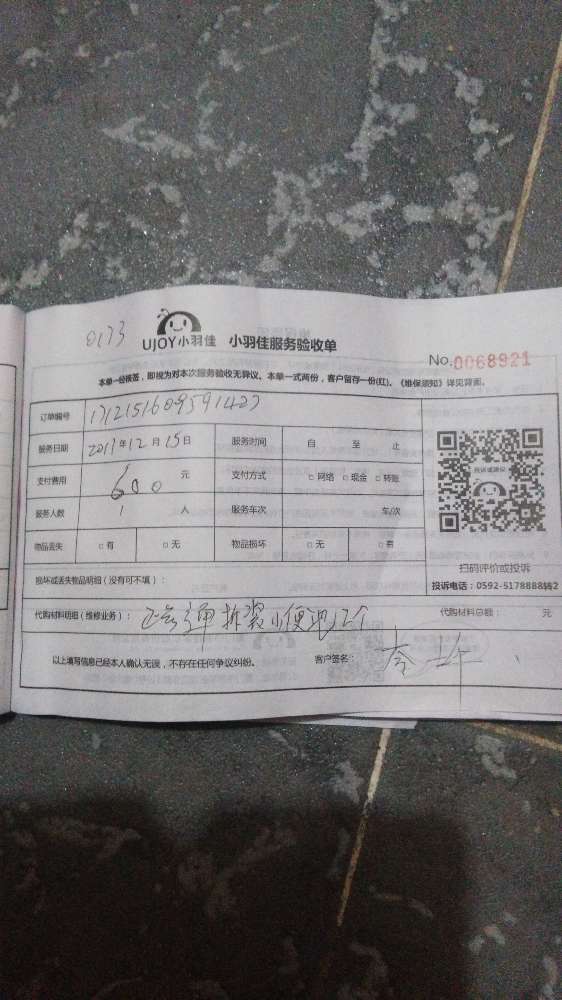 0173
UJOY小羽佳 小羽佳服务验收单
No.0068921
本单一经接签，即视为对本次服务验收无异议。本单一式两份，客户留存一份(红)。《维保须知》详见背面。
订单编号 1712151609591427
服务日期 2017年12月15日 服务时间 自 至 止
支付费用 600 元 支付方式 □网络 □现金 □转账
服务人数 1 人 服务车次 车/次
物品丢失 □有 □无 物品损坏 □无 □有
投诉或建议
扫码评价或投诉
损坏或丢失物品明细（没有可不填）：
投诉电话：0592-5178888转2
代购材料明细（维修业务）： 拆装小便池12个 代购材料总额： 元
以上填写信息已经本人确认无误，不存在任何争议纠纷。 客户签名：